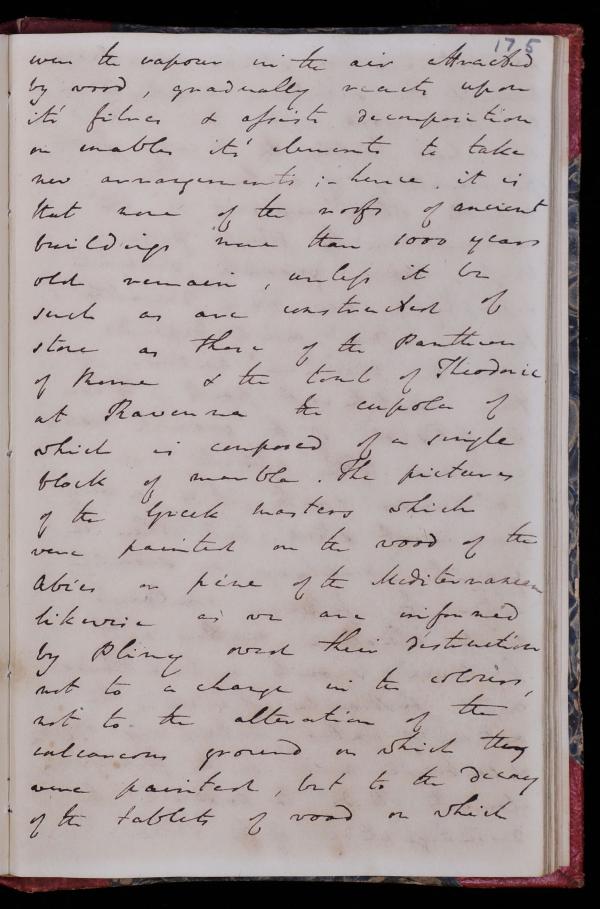 175
even the vapour in the air attracted
by wood, gradually reacts upon
it's fibres & assists decomposition
or enables it's elements to take
new arrangements ;- hence, it is
that none of the roofs of ancient
buildings more than 1000 years
old remain, unless it be
such as are constructed of
stone as those of the Pantheon
of Rome & the tomb of Theodoric
at Ravenna the cupola of
which is composed of a single
block of marble. The pictures
of the Greek masters which
were painted on the wood of the
Abies or pine of the Mediterranean
likewise as we are informed
by Pliny owed their destruction
not to a change in the colours,
not to the alteration of the
calcareous ground on which they
were painted, but to the decay
of the tablets of wood on which